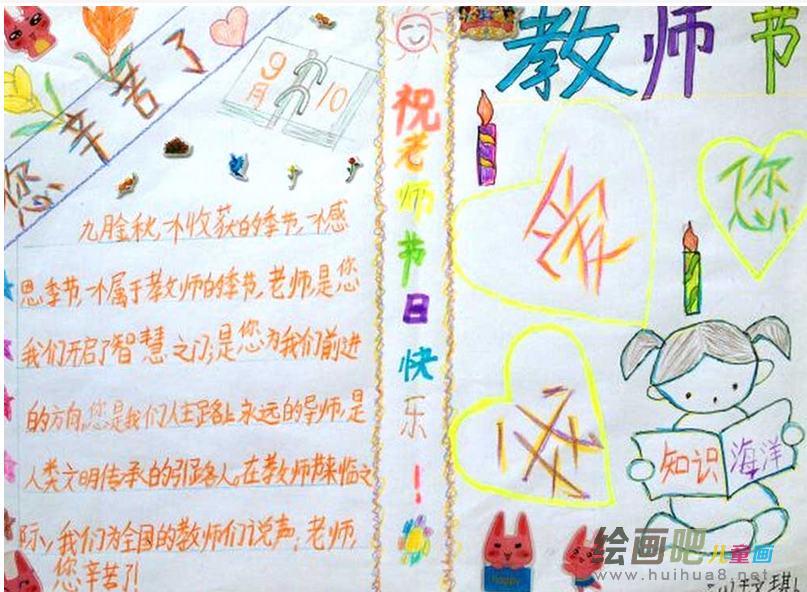 您辛苦了
9月10
九月金秋,一个收获的季节,一个感
恩季节,一个属于教师的季节,老师,是您
我们开启了智慧之门;是您为我们前进
的方向,您是我们人生路上永远的导师,是
人类文明传承的引路人。在教师节来临之
际,我们为全国的教师们说声:老师,
您辛苦了!
祝老师节日快乐!
教师节
您
知识海洋
happy
绘画吧儿童画
www.huihua8.net